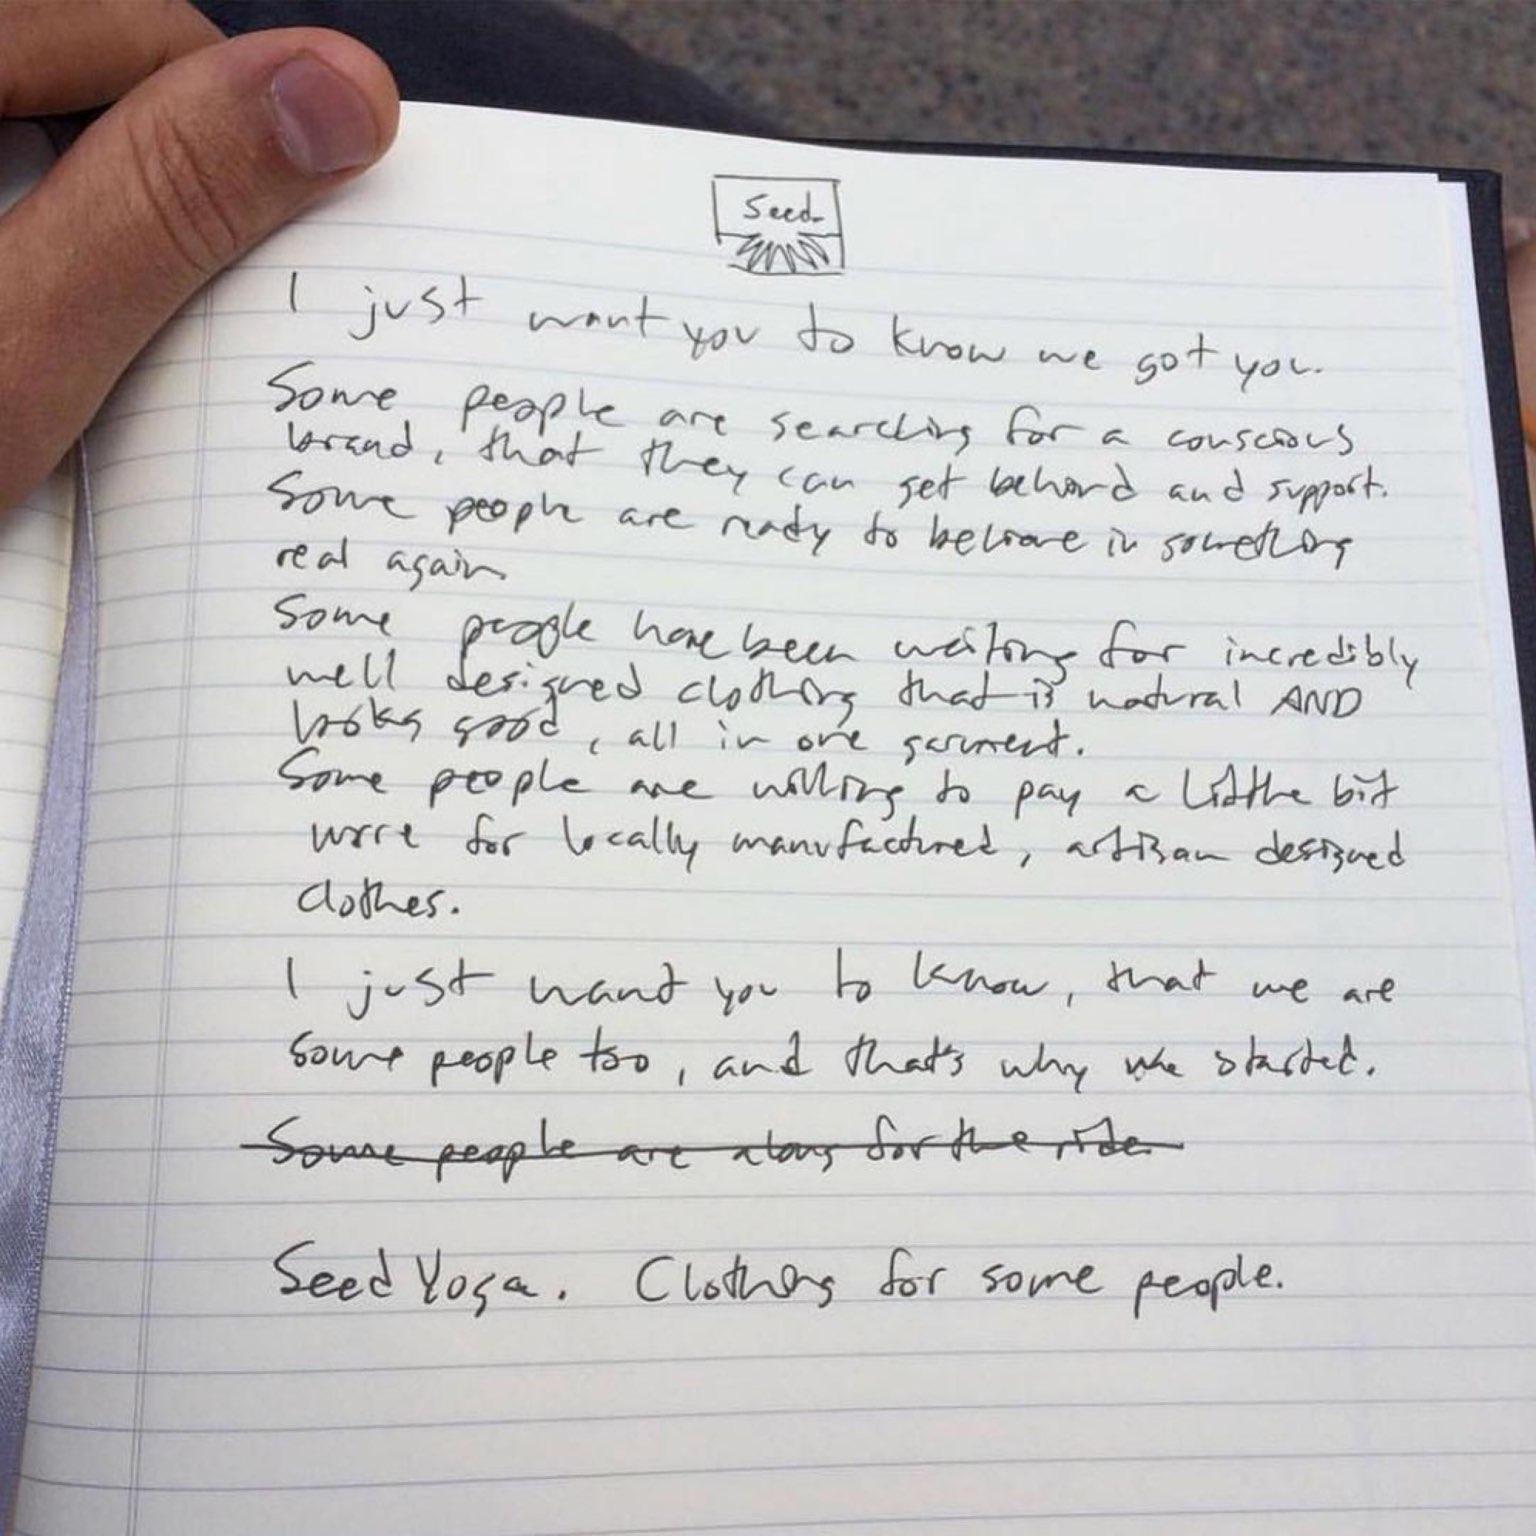 Seed
I just want you to know we got you.
Some people are searching for a conscious
brand, that they can get behind and support.
Some people are ready to believe in something
real again
Some people have been waiting for incredibly
well designed clothing that is natural AND
looks good, all in one garment.
Some people are willing to pay a little bit
more for locally manufactured, artisan designed
clothes.
I just want you to know, that we are
some people too, and that's why we started.
Some people are along for the ride.
Seed Yoga. Clothing for some people.